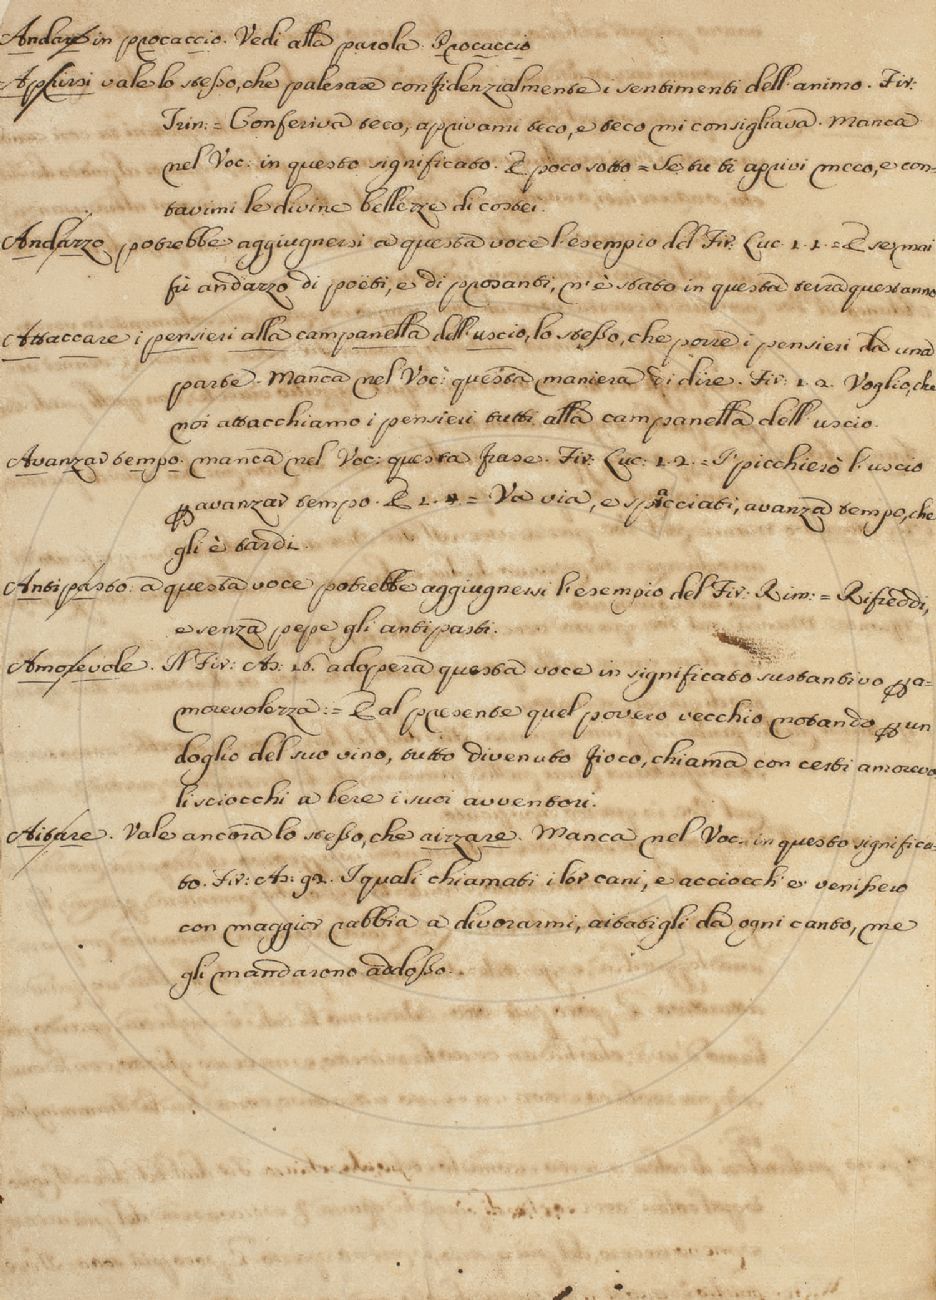 Andare in procaccio. Vedi alla parola Procaccio
Aprirsi vale lo stesso, che palesare confidenzialmente i sentimenti dell'animo. Fir:
Trin: = Conferiva teco, aprivami teco, e teco mi consigliava. Manca
nel Voc: in questo significato. E poco sotto = Se tu ti aprivi meco, e con-
tavimi le divine bellezze di costei.
Andazzo potrebbe aggiugnersi a questa voce l'esempio del Fir: Luc. 1. 1. = E se mai
fù andazzo di poëti, e di prosanti, n'è stato in questa terra quest'anno
Attaccare i pensieri alla campanella dell'uscio, lo stesso, che porre i pensieri da una
parte. Manca nel Voc: questa maniera di dire. Fir: 1. 2. Voglio, che
noi attacchiamo i pensieri tutti alla campanella dell'uscio.
Avanzar tempo. manca nel Voc: questa frase. Fir: Luc: 1. 2. = I' picchierò l'uscio
ꝑ avanzar tempo. E 1. 4 = Va via, e spacciati, avanza tempo, che
gli è tardi.
Antipasto. a questa voce potrebbe aggiugnersi l'esempio del Fir: Rim: = Rifreddi,
e senza pepe gli antipasti.
Amorevole. Il Fir: As: 16. adopera questa voce in significato sustantivo ꝑ a-
morevolezza: = E al presente quel povero vecchio notando ꝑ un
doglio del suo vino, tutto divenuto fioco, chiama con certi amorevo
li sciocchi a bere i suoi avventori.
Aitare. Vale ancora lo stesso, che aizzare. Manca nel Voc: in questo significa-
to. Fir: As: 92. I quali chiamati i lor cani, e acciocch'e' venissero
con maggior rabbia a divorarmi, aitatigli da ogni canto, me
gli mandarono addosso.